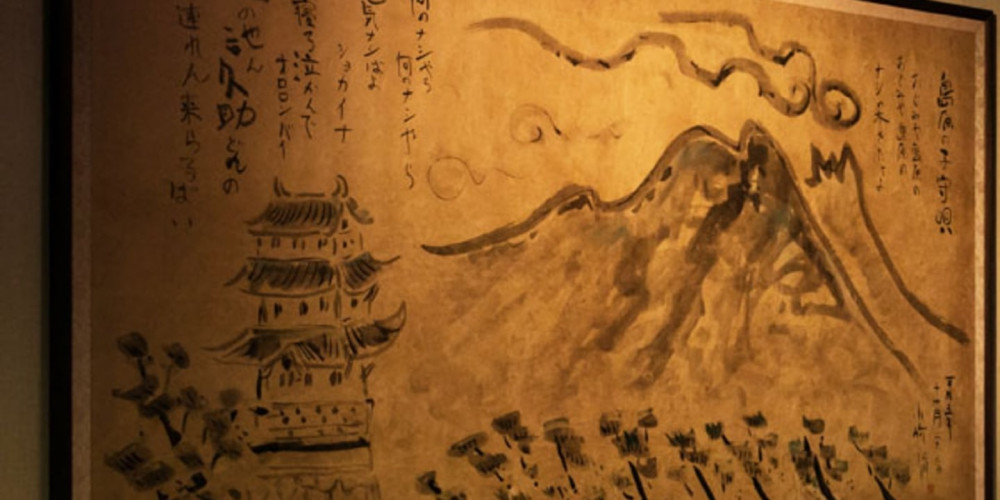 島原の子守唄
おどみゃ島原の
おどみゃ島原の
ナシの木そだちよ
何のナシやら 何のナシやら
色気ナシばよ
ショカイナ
寝ろ泣かんで
オロロンバイ
の池ん
久助どんの
連れん来らるばい